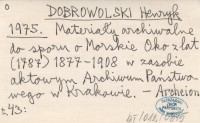 DOBROWOLSKI Henryk
1975. Materiały archiwalne
do sporu o Morskie Oko z lat
(1787) 1877-1908 w zasobie
aktowym Archiwum Państwo-
wego w Krakowie. — Archeion
t. 43: